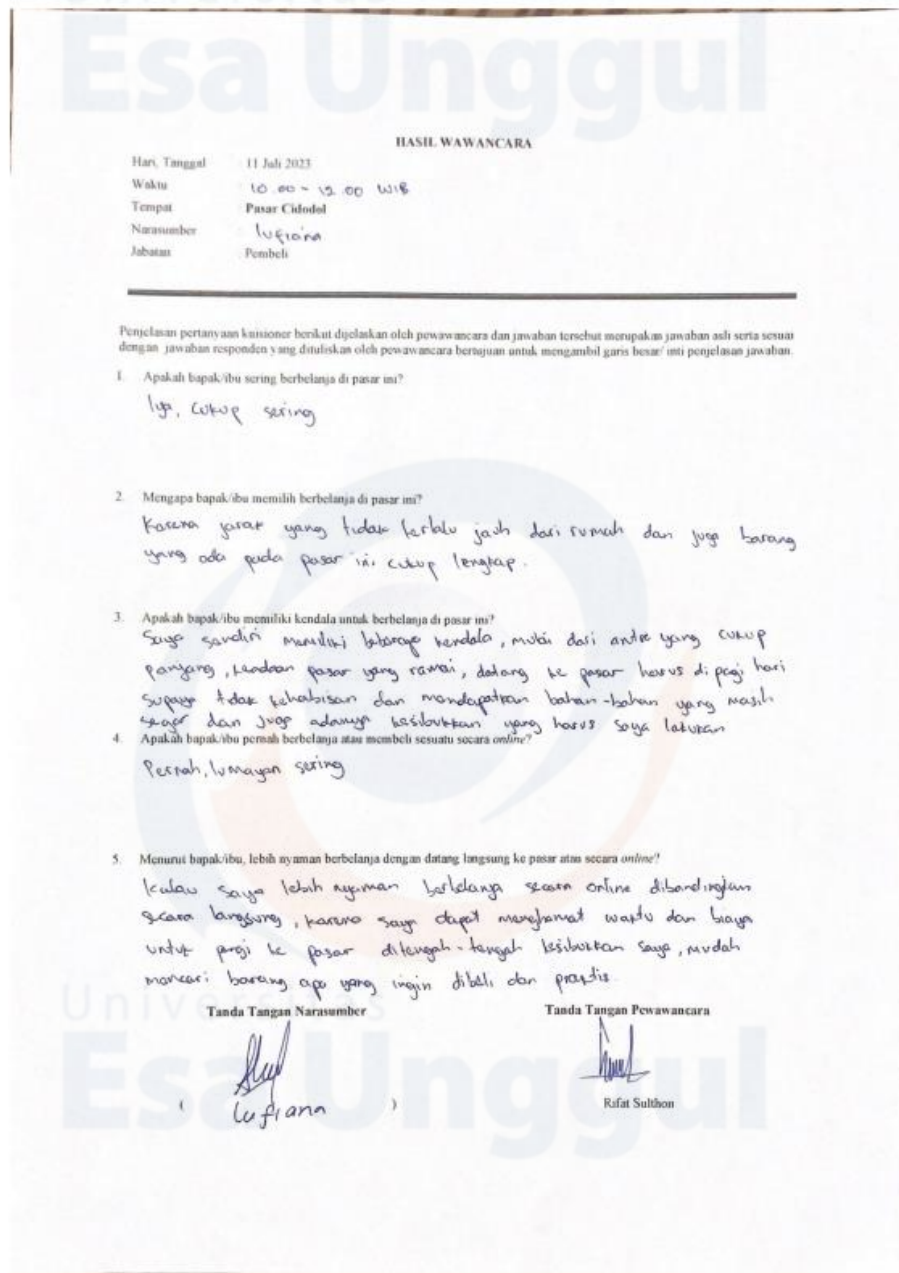 Universitas
Esa Unggul
HASIL WAWANCARA
Hari, Tanggal : 11 Juli 2023
Waktu : 10.00 - 12.00 WIB
Tempat : Pasar Cidodol
Narasumber : lufiana
Jabatan : Pembeli
Penjelasan pertanyaan kuisioner berikut dijelaskan oleh pewawancara dan jawaban tersebut merupakan jawaban asli serta sesuai
dengan jawaban responden yang dituliskan oleh pewawancara bertujuan untuk mengambil garis besar/ inti penjelasan jawaban.
1. Apakah bapak/ibu sering berbelanja di pasar ini?
Iya, cukup sering
2. Mengapa bapak/ibu memilih berbelanja di pasar ini?
Karena jarak yang tidak terlalu jauh dari rumah dan juga barang
yang ada pada pasar ini cukup lengkap.
3. Apakah bapak/ibu memiliki kendala untuk berbelanja di pasar ini?
Saya sendiri memiliki beberapa kendala, mulai dari antre yang cukup
panjang, keadaan pasar yang ramai, datang ke pasar harus di pagi hari
supaya tidak kehabisan dan mendapatkan bahan-bahan yang masih
segar dan juga adanya kesibukkan yang harus saya lakukan
4. Apakah bapak/ibu pernah berbelanja atau membeli sesuatu secara online?
Pernah, lumayan sering
5. Menurut bapak/ibu, lebih nyaman berbelanja dengan datang langsung ke pasar atau secara online?
Kalau saya lebih nyaman berbelanja secara online dibandingkan
secara langsung, karena saya dapat menghemat waktu dan biaya
untuk pergi ke pasar ditengah-tengah kesibukkan saya, mudah
mencari barang apa yang ingin dibeli dan praktis.
Universitas
Tanda Tangan Narasumber Tanda Tangan Pewawancara
Esa Unggul
( lufiana ) Rifat Sulthon